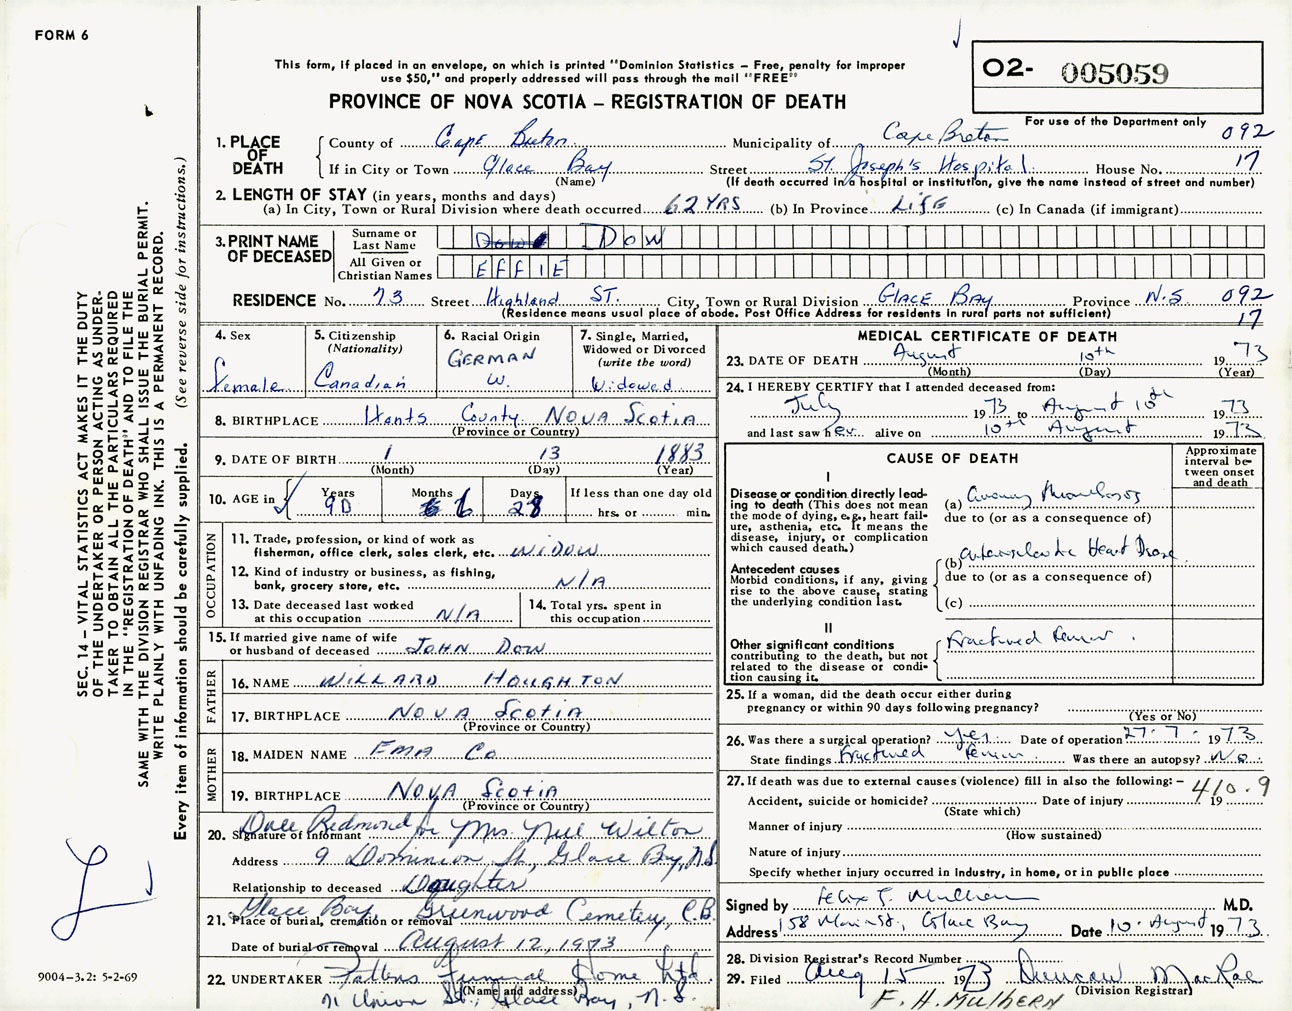 FORM 6
This form, if placed in an envelope, on which is printed "Dominion Statistics – Free, penalty for improper
use $50," and properly addressed will pass through the mail "FREE"
PROVINCE OF NOVA SCOTIA – REGISTRATION OF DEATH
O2- 005059
For use of the Department only 092
1. PLACE OF DEATH
County of Cape Breton Municipality of Cape Breton
If in City or Town Glace Bay Street St. Joseph's Hospital House No. 17
(Name) (If death occurred in a hospital or institution, give the name instead of street and number)
2. LENGTH OF STAY (in years, months and days)
(a) In City, Town or Rural Division where death occurred 62 YRS (b) In Province LIFE (c) In Canada (if immigrant)
3. PRINT NAME OF DECEASED
Surname or Last Name Dow
All Given or Christian Names EFFIE
RESIDENCE No. 73 Street Highland ST. City, Town or Rural Division GLACE BAY Province N.S 092
(Residence means usual place of abode. Post Office Address for residents in rural parts not sufficient) 17
4. Sex Female
5. Citizenship (Nationality) Canadian
6. Racial Origin GERMAN W.
7. Single, Married, Widowed or Divorced (write the word) Widowed
8. BIRTHPLACE Hants County NOVA SCOTIA
(Province or Country)
9. DATE OF BIRTH 1 13 1883
(Month) (Day) (Year)
10. AGE in Years 90 Months 6 Days 28 If less than one day old
hrs. or min.
OCCUPATION
11. Trade, profession, or kind of work as
fisherman, office clerk, sales clerk, etc. WIDOW
12. Kind of industry or business, as fishing,
bank, grocery store, etc. N/A
13. Date deceased last worked
at this occupation N/A
14. Total yrs. spent in
this occupation
15. If married give name of wife
or husband of deceased JOHN DOW
FATHER
16. NAME WILLARD HOUGHTON
17. BIRTHPLACE NOVA SCOTIA
(Province or Country)
MOTHER
18. MAIDEN NAME EMA CO
19. BIRTHPLACE NOVA SCOTIA
(Province or Country)
20. Signature of informant Dale Redmond for Mrs. Neil Wilton
Address 9 Dominion St., Glace Bay, N.S
Relationship to deceased Daughter
21. Place of burial, cremation or removal Glace Bay Greenwood Cemetery, C.B.
Date of burial or removal August 12, 1973
22. UNDERTAKER Pattens Funeral Home Ltd.
(Name and address)
71 Union St., Glace Bay, N.S.
MEDICAL CERTIFICATE OF DEATH
23. DATE OF DEATH August 10th 1973
(Month) (Day) (Year)
24. I HEREBY CERTIFY that I attended deceased from:
July 1973 to August 10th 1973
and last saw her alive on 10th August 1973
CAUSE OF DEATH
Approximate interval between onset and death
I
Disease or condition directly leading to death (This does not
mean the mode of dying, e.g., heart failure, asthenia, etc. It means the
disease, injury, or complication
which caused death.)
(a) Coronary Thrombosis
due to (or as a consequence of)
Antecedent causes
Morbid conditions, if any, giving
rise to the above cause, stating
the underlying condition last.
(b) Arteriosclerotic Heart Disease
due to (or as a consequence of)
(c)
II
Other significant conditions
contributing to the death, but not
related to the disease or condition causing it.
Fractured Femur.
25. If a woman, did the death occur either during
pregnancy or within 90 days following pregnancy?
(Yes or No)
26. Was there a surgical operation? Yes Date of operation 27.7. 1973
State findings Fractured Femur Was there an autopsy? No
27. If death was due to external causes (violence) fill in also the following: – 410.9
Accident, suicide or homicide? Date of injury 19
(State which)
Manner of injury
(How sustained)
Nature of injury
Specify whether injury occurred in industry, in home, or in public place
Signed by Felix F. Mulhern M.D.
Address 158 Main St., Glace Bay Date 10 August 1973
28. Division Registrar's Record Number
29. Filed Aug 15 1973 Duncan MacRae
(Division Registrar)
F. H. Mulhern
SEC. 14 – VITAL STATISTICS ACT MAKES IT THE DUTY
OF THE UNDERTAKER OR PERSON ACTING AS UNDER-
TAKER TO OBTAIN ALL THE PARTICULARS REQUIRED
IN THE "REGISTRATION OF DEATH" AND TO FILE THE
SAME WITH THE DIVISION REGISTRAR WHO SHALL ISSUE THE BURIAL PERMIT.
WRITE PLAINLY WITH UNFADING INK. THIS IS A PERMANENT RECORD.
Every item of information should be carefully supplied. (See reverse side for instructions.)
9004-3.2: 5-2-69